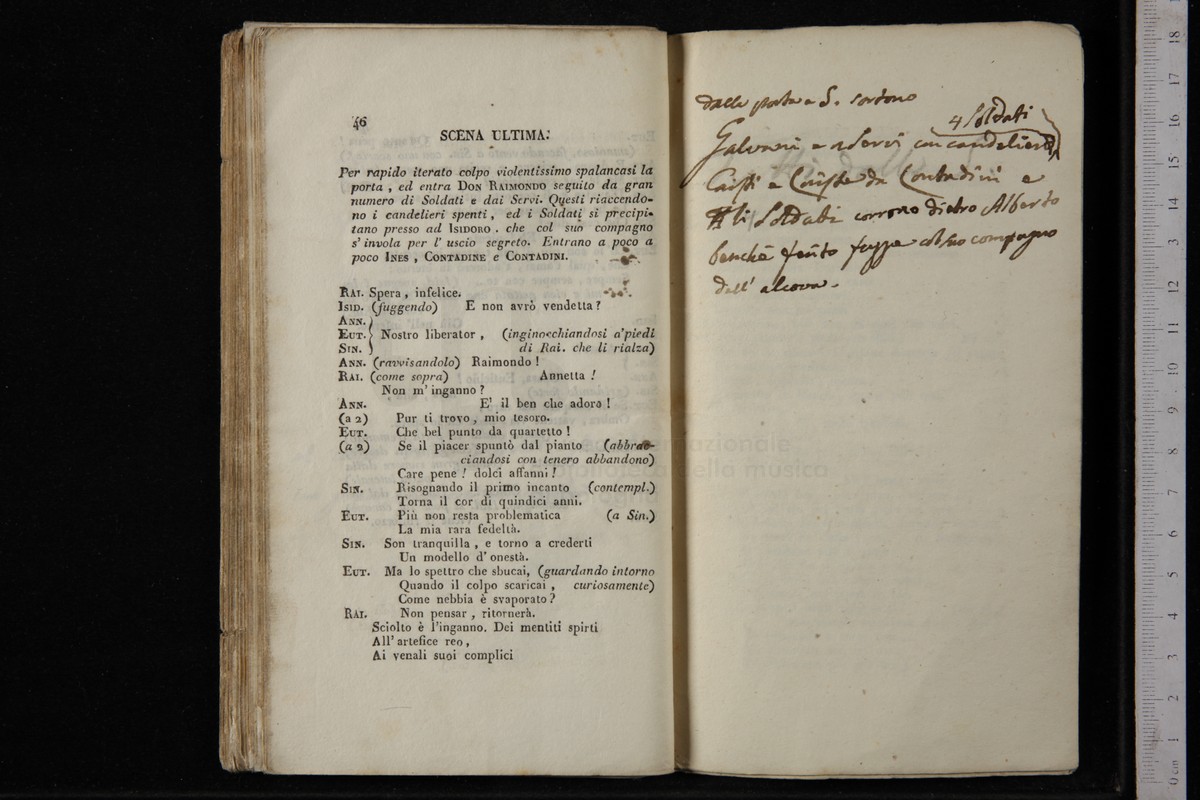 46
SCENA ULTIMA.
Per rapido iterato colpo violentissimo spalancasi la
porta , ed entra DON RAIMONDO seguito da gran
numero di Soldati e dai Servi. Questi riaccendo-
no i candelieri spenti , ed i Soldati si precipi-
tano presso ad ISIDORO . che col suo compagno
s' invola per l' uscio segreto. Entrano a poco a
poco INES , CONTADINE e CONTADINI.
RAI. Spera , infelice.
ISID. (fuggendo) E non avrò vendetta ?
ANN.
EUT. Nostro liberator , (inginocchiandosi a'piedi
SIN. di Rai. che li rialza)
ANN. (ravvisandolo) Raimondo !
RAI. (come sopra) Annetta !
Non m' inganno ?
ANN. E' il ben che adoro !
(a 2) Pur ti trovo , mio tesoro.
EUT. Che bel punto da quartetto !
(a 2) Se il piacer spuntò dal pianto (abbrac-
ciandosi con tenero abbandono)
Care pene ! dolci affanni !
SIN. Risognando il primo incanto (contempl.)
Torna il cor di quindici anni.
EUT. Più non resta problematica (a Sin.)
La mia rara fedeltà.
SIN. Son tranquilla , e torno a crederti
Un modello d' onestà.
EUT. Ma lo spettro che sbucai, (guardando intorno
Quando il colpo scaricai , curiosamente)
Come nebbia è svaporato ?
RAI. Non pensar , ritornerà.
Sciolto è l'inganno. Dei mentiti spirti
All' artefice reo ,
Ai venali suoi complici
dalla porta a S. sortono
4 Soldati
Galvani e servi con candelieri
Coristi e Coriste da Contadini e
li Soldati corrono dietro Alberto
benchè ferito fugge col suo compagno
dall' alcova.
internazionale
biblioteca della musica